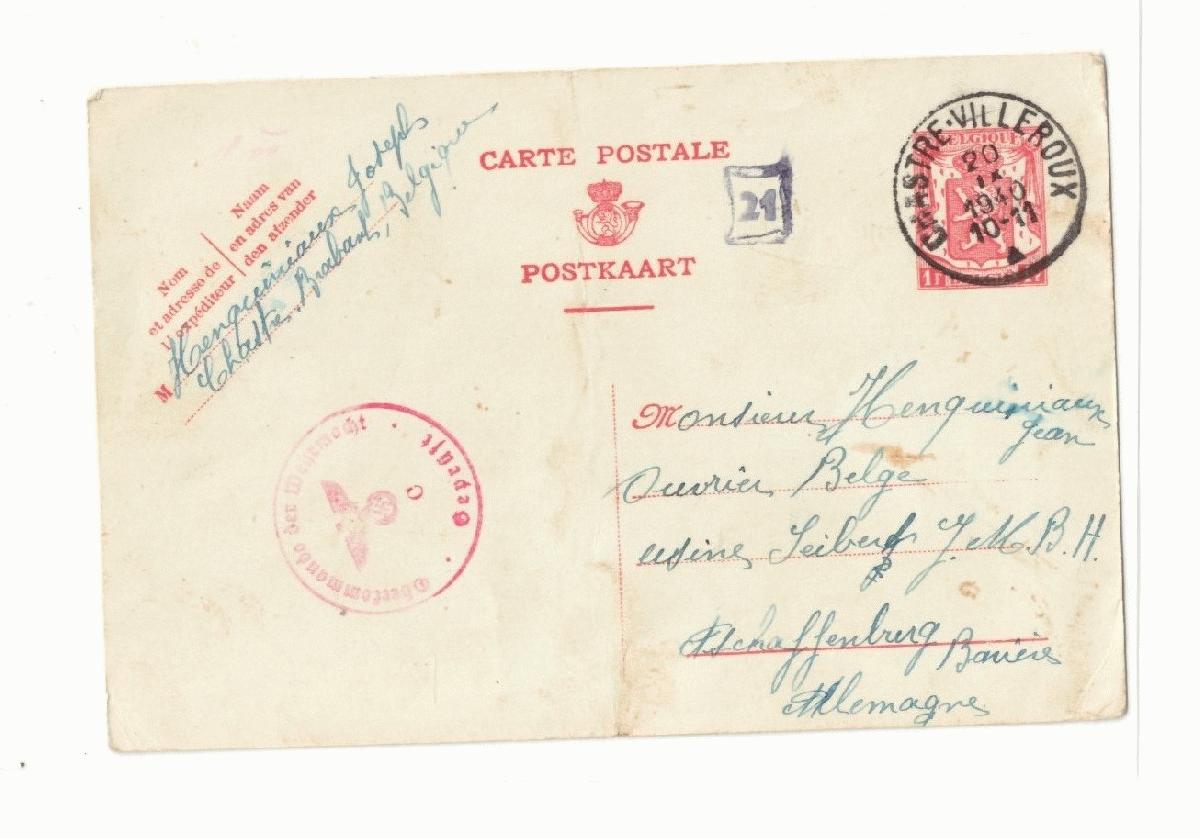 CARTE POSTALE
POSTKAART
Nom
et adresse de
l'expéditeur
Naam
en adres van
den afzender
M Henquiniaux Joseph
Chastre Brabant, Belgique
21
BELGIQUE
CHASTRE-VILLEROUX
20
IX
1940
10-11
Monsieur Henquiniaux
Jean
Ouvrier Belge
usine Seibert J.M.B.H.
Aschaffenburg Bavière
Allemagne
Oberkommando der Wehrmacht
Geprüft
C